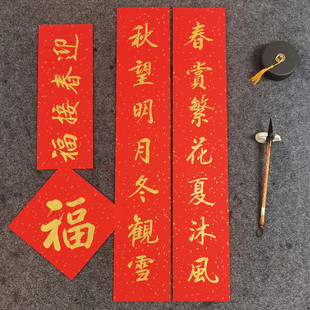 春賞繁花夏沐風
秋望明月冬觀雪
迎春接福
福